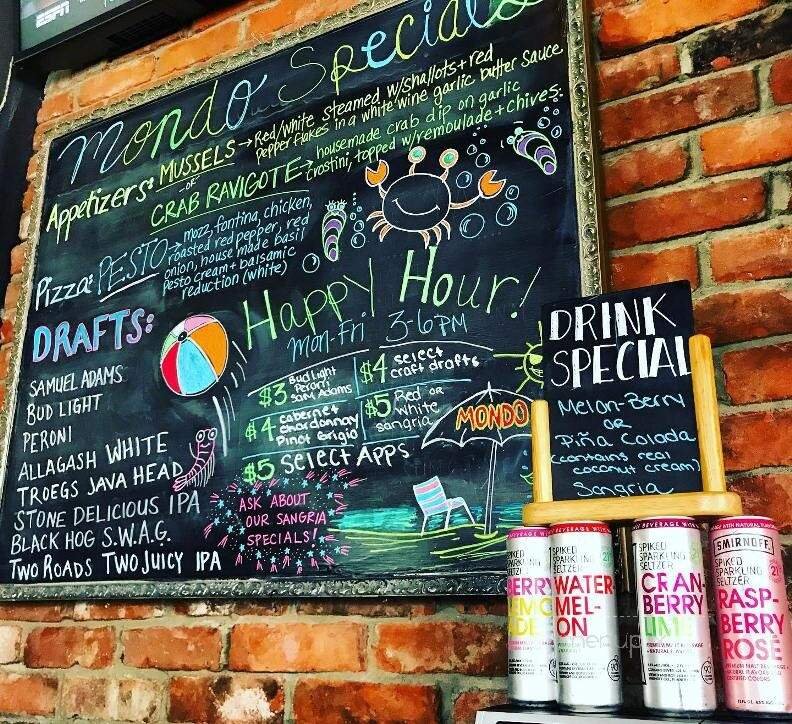 ESPN
Mondo Specials
Appetizers: MUSSELS → Red/white steamed w/shallots + red
pepper flakes in a white wine garlic butter sauce
-or-
CRAB RAVIGOTE → housemade crab dip on garlic
crostini, topped w/remoulade + chives.
Pizza: PESTO → mozz, fontina, chicken,
roasted red pepper, red
onion, house made basil
pesto cream + balsamic
reduction (white)
DRAFTS:
SAMUEL ADAMS
BUD LIGHT
PERONI
ALLAGASH WHITE
TROEGS JAVA HEAD
STONE DELICIOUS IPA
BLACK HOG S.W.A.G.
TWO ROADS TWO JUICY IPA
Happy Hour!
Mon-Fri 3-6PM
$3 Bud light
Peroni
Sam Adams
$4 select
craft drafts
$4 cabernet
chardonnay
Pinot Grigio
$5 Red or
white
sangria
$5 select Apps
MONDO
ASK ABOUT
OUR SANGRIA
SPECIALS!
DRINK
SPECIAL
Melon-Berry
OR
Piña Colada
(contains real
coconut cream)
Sangria
SPIKED
SPARKLING
SELTZER
BERRY
LEMONADE
SPIKED
SPARKLING
SELTZER
WATER-
MEL-
ON
SPIKED
SPARKLING
SELTZER
CRAN-
BERRY
LIME
SMIRNOFF
SPIKED
SPARKLING
SELTZER
RASP-
BERRY
ROSÉ